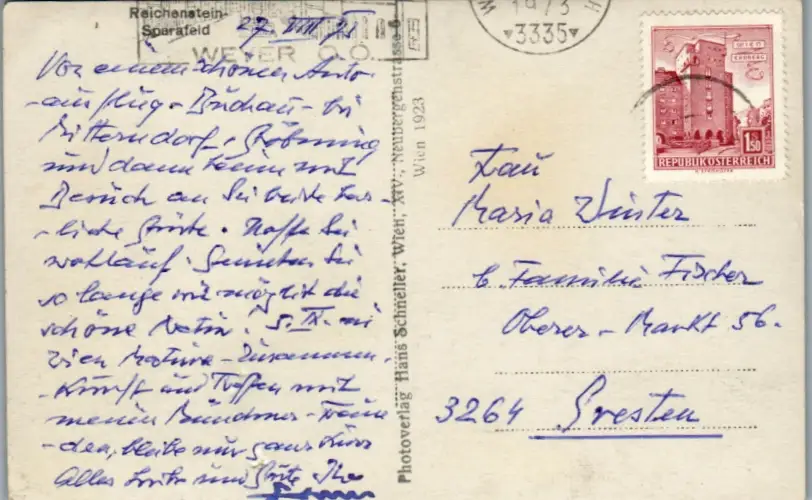 Reichenstein-
Sparafeld
27. VIII. 75
WEYER O.Ö.
1973
3335
Von einem schönen Auto-
ausflug - Buchau - bei
Mitterndorf, Gröbming
und dann heim mit
Besuch an Sie beide herz-
liche Grüße. Hoffe Sie
wohlauf. Genießen Sie
so lange wie möglich die
schöne Natur! 5. IX. in
Wien Matura-Zusammen-
kunft und Treffen mit
meinen Münchner-Freun-
den, bleibe nur ganz kurz
Alles Liebe und Grüße Ihr
Photoverlag Hans Schneller, Wien, XIV., Neubergenstrasse 6
Wien 1923
WIEN
ERDBERG
1.50
REPUBLIK ÖSTERREICH
Frau
Maria Winter
b. Familie Fischer
Oberer-Markt 56.
3264 Gresten